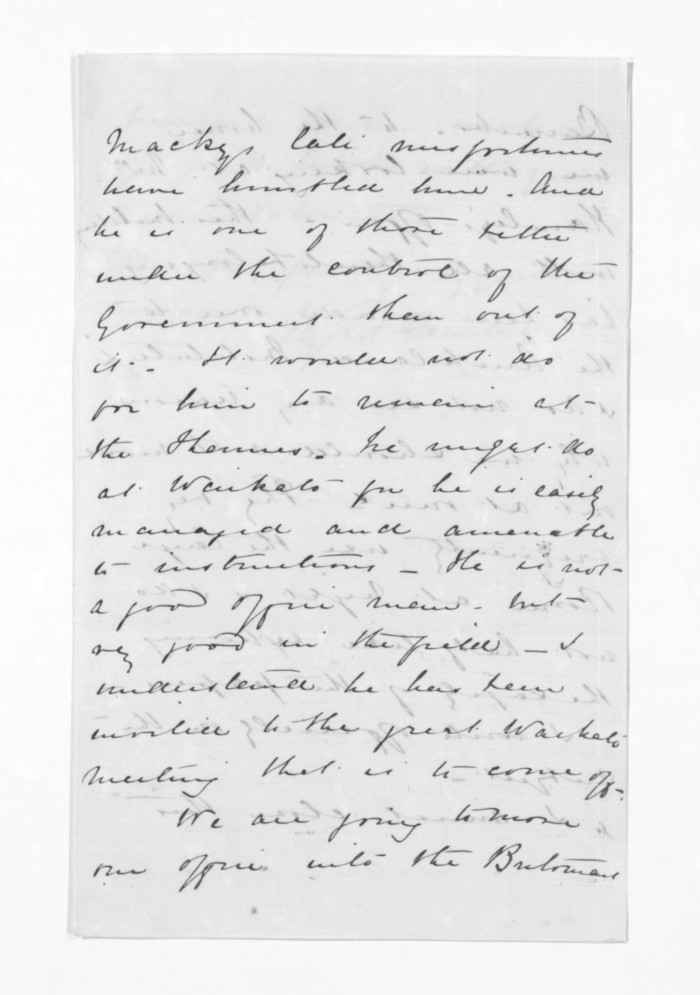 Mackays late misfortunes
have humbled him. And
he is one of those better
under the control of the
Government than out of
it - It would not do
for him to remain at
the Thames. He might do
at Waikato for he is easily
managed and amenable
to instructions - He is not
a good office man - but
very good in the field - I
understand he has been
invited to the great Waikato
meeting that is to come off.
We are going to move
our office into the Britomart